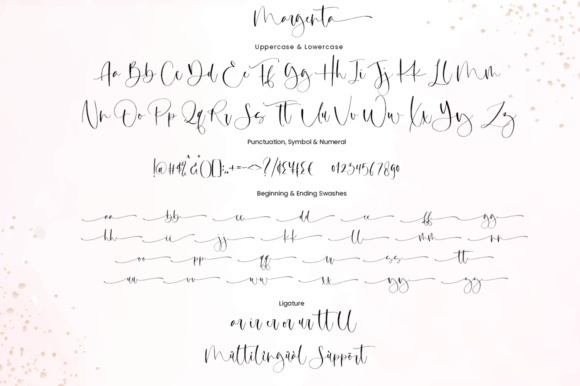 Margenta
Uppercase & Lowercase
Aa Bb Cc Dd Ee Ff Gg Hh Ii Jj Kk Ll Mm
Nn Oo Pp Qq Rr Ss Tt Uu Vv Ww Xx Yy Zz
Punctuation, Symbol & Numeral
0123456789
Beginning & Ending Swashes
aa bb cc dd ee ff gg
hh ii jj kk ll mm nn
oo pp qq rr ss tt
uu vv ww xx yy zz
Ligature
ar ir er or ur tt ll
Multilingual Support